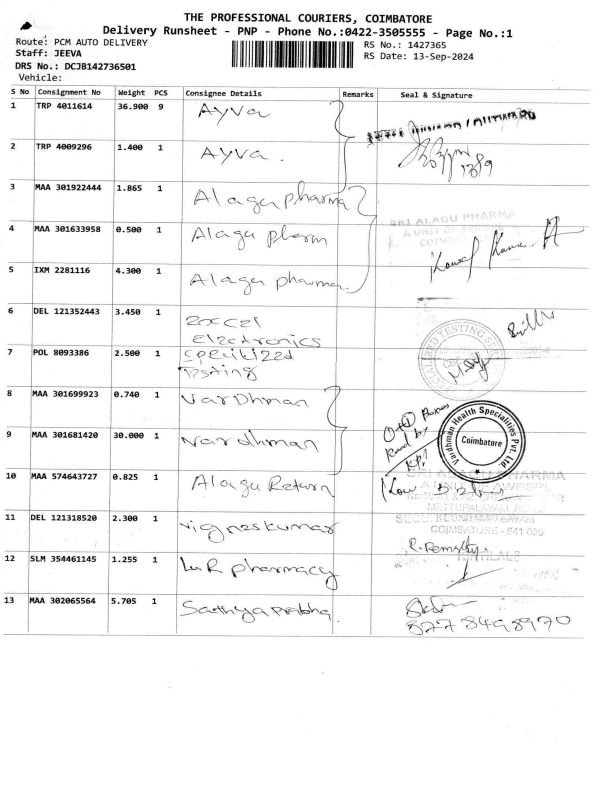 THE PROFESSIONAL COURIERS, COIMBATORE
Delivery Runsheet - PNP - Phone No.:0422-3505555 - Page No.:1
Route: PCM AUTO DELIVERY
RS No.: 1427365
Staff: JEEVA
RS Date: 13-Sep-2024
DRS No.: DCJB142736501
Vehicle:
S No Consignment No Weight PCS Consignee Details Remarks Seal & Signature
1 TRP 4011614 36.900 9 Ayva
2 TRP 4009296 1.400 1 Ayva.
3 MAA 301922444 1.865 1 Alagu pharma
SRI ALAGU PHARMA
A UNIT OF
4 MAA 301633958 0.500 1 Alagu pharm
5 IXM 2281116 4.300 1 Alagu pharma.
6 DEL 121352443 3.450 1 Excel
Electronics
7 POL 8093386 2.500 1 Specilized
Testing
8 MAA 301699923 0.740 1 Vardhman
Vardhman Health Specialities Pvt. Ltd.
Coimbatore
9 MAA 301681420 30.000 1 Vardhman
10 MAA 574643727 0.825 1 Alagu Return
SRI ALAGU PHARMA
METTUPALAYAM
11 DEL 121318520 2.300 1 Vigneskumar
COIMBATORE - 641 030
12 SLM 354461145 1.255 1 pharmacy
13 MAA 302065564 5.705 1 Sathyaprabha.
8778498970